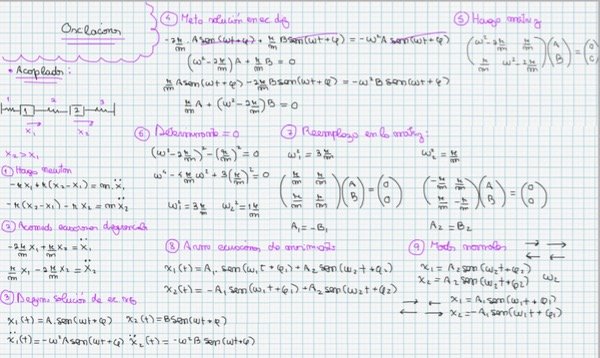 Oscilaciones
• Acoplados:
1 2 3
1 2
x₁ x₂
x₂ > x₁
① Hago newton
-k x₁ + k(x₂-x₁) = m ẍ₁
-k(x₂-x₁) - k x₂ = m ẍ₂
② Acomodo ecuaciones diferenciales
-2k/m x₁ + k/m x₂ = ẍ₁
k/m x₁ - 2k/m x₂ = ẍ₂
③ solución de ec.
x₁(t) = A sen(ωt+φ) x₂(t) = B sen(ωt+φ)
ẍ₁(t) = -ω² A sen(ωt+φ) ẍ₂(t) = -ω² B sen(ωt+φ)
④ Meto solución en ec. dif
-2k/m A sen(ωt+φ) + k/m B sen(ωt+φ) = -ω² A sen(ωt+φ)
(ω² - 2k/m) A + k/m B = 0
k/m A sen(ωt+φ) - 2k/m B sen(ωt+φ) = -ω² B sen(ωt+φ)
k/m A + (ω² - 2k/m) B = 0
⑤ Hago matriz
(ω² - 2k/m k/m) (A) = (0)
(k/m ω² - 2k/m) (B) (0)
⑥ Determinante = 0
(ω² - 2k/m)² - (k/m)² = 0
ω⁴ - 4k/m ω² + 3(k/m)² = 0
ω₁² = 3k/m ω₂² = 1k/m
⑦ Reemplazo en la matriz:
ω₁² = 3k/m ω₂² = k/m
(k/m k/m) (A) = (0) (-k/m k/m) (A) = (0)
(k/m k/m) (B) (0) (k/m -k/m) (B) (0)
A₁ = -B₁ A₂ = B₂
⑧ Armo ecuaciones de movimiento
x₁(t) = A₁ sen(ω₁t+φ₁) + A₂ sen(ω₂t+φ₂)
x₂(t) = -A₁ sen(ω₁t+φ₁) + A₂ sen(ω₂t+φ₂)
⑨ Modos normales
x₁ = A₂ sen(ω₂t+φ₂)
x₂ = A₂ sen(ω₂t+φ₂) ω₂
x₁ = A₁ sen(ω₁t+φ₁)
x₂ = -A₁ sen(ω₁t+φ₁)